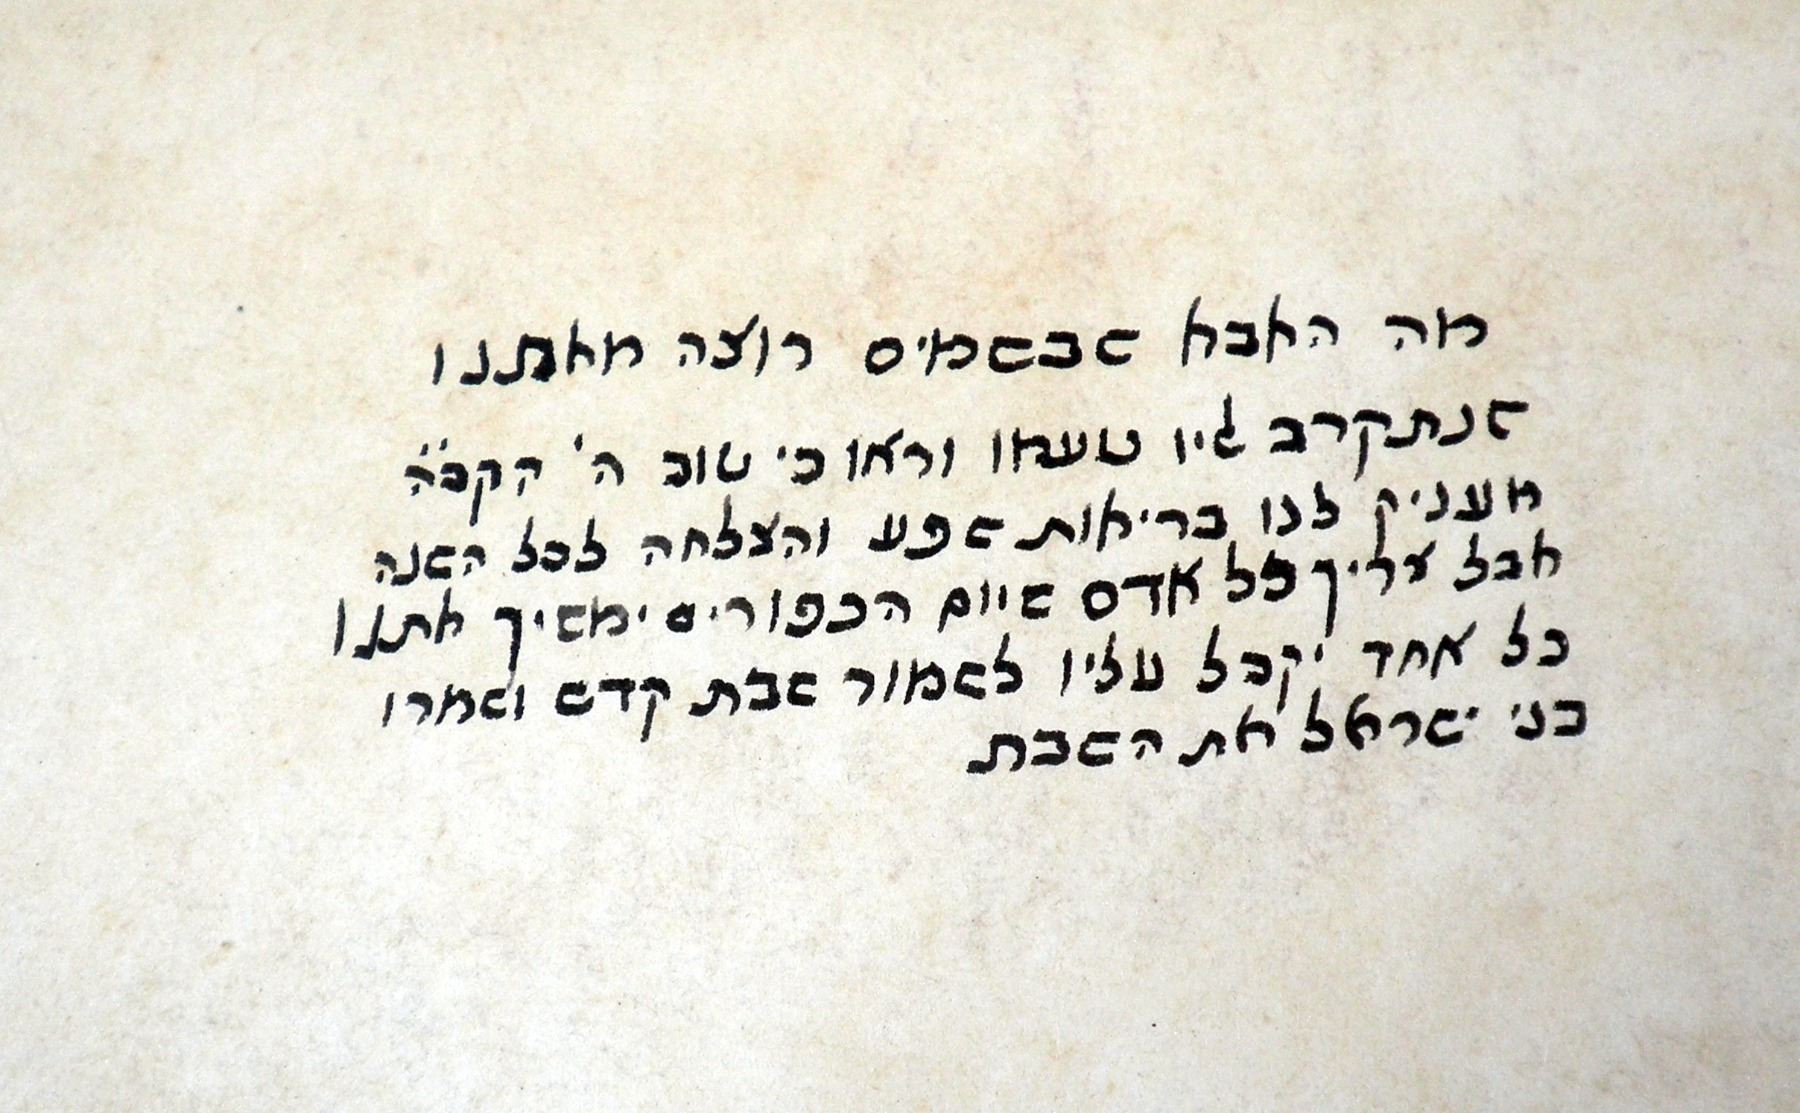 מה האבא שבשמים רוצה מאתנו
שנתקרב גיו טעמו וראו כי טוב ה' הקב"ה
מעניק לנו בריאות שפע והצלחה לכל השנה
אבל עליך כל אדם שיום הכפורים ימשיך אתנו
כל אחד יקבל עליו לשמור שבת קדש ושמרו
בני ישראל את השבת